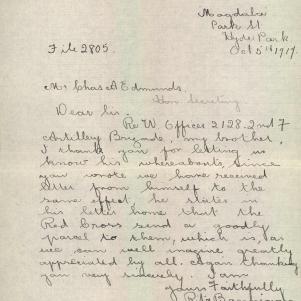 Magdala
Park St
Hyde Park
Oct 5th 1917.
File 2805.
Mr Chas A Edmunds.
Hon Secretary
Dear Sir.
Re W. Officer 2128. 2nd F
Artilley Brigade. my brother.
I thank you for letting us
know his whereabouts, since
you wrote we have received
letter from himself to the
same effect, he states in
his letter home that the
Red Cross send a goodly
parcel to them, which is, as
we can well imagine greatly
appreciated by all. Again thanking
you very sincerely. I am
yours Faithfully